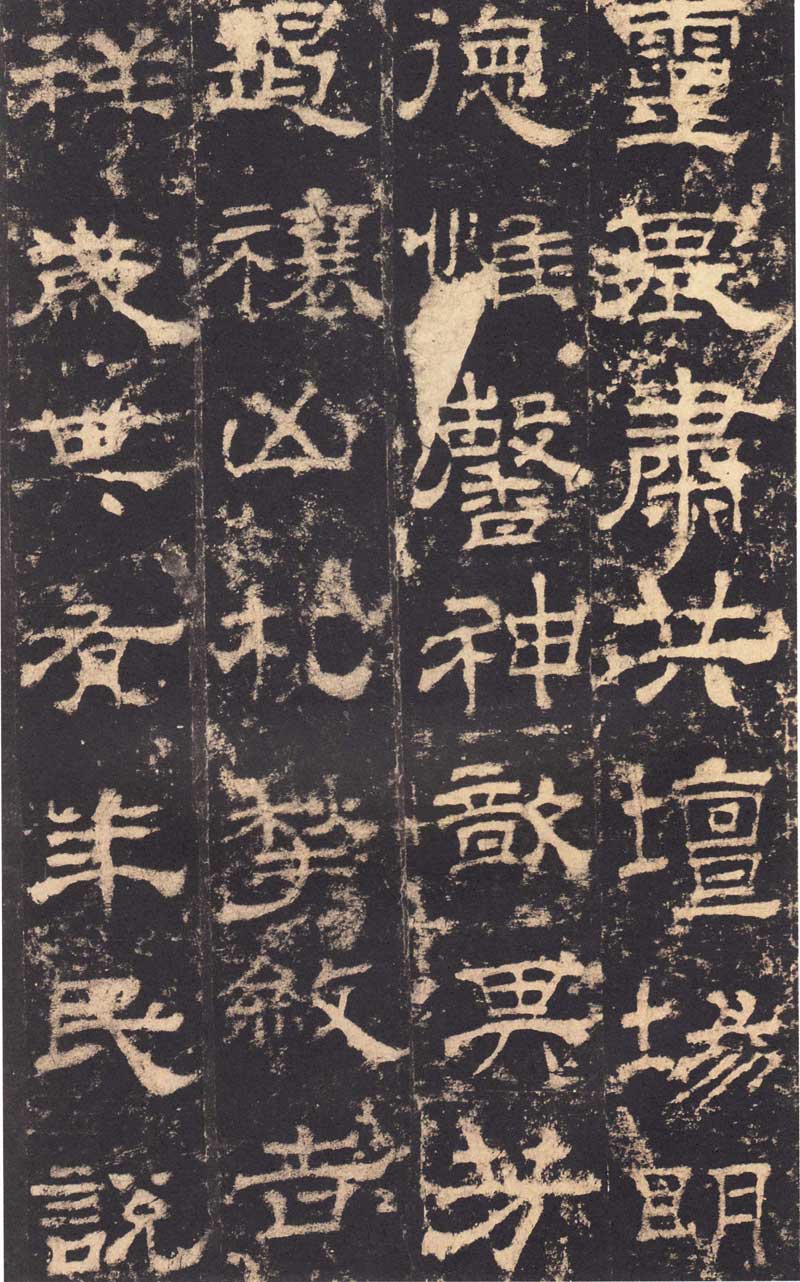 靈基肅共壇場明
德惟馨神歆其芳
遏禳凶札揫斂吉
祥歲其有年民說